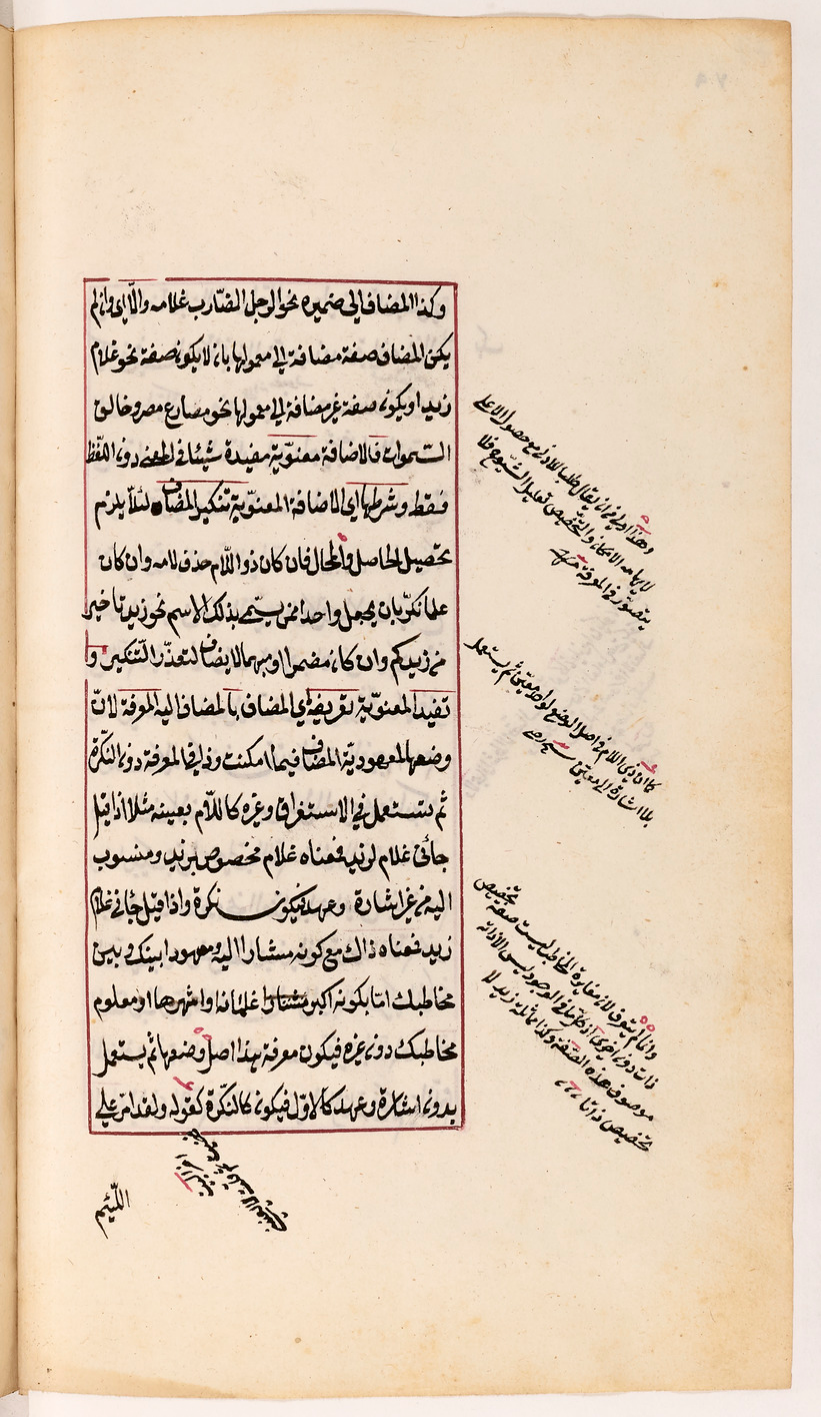 وكذا المضاف الى ضميره نحو الرجل الضارب غلامه والا اى وان لم
يكن المضاف صفة مضافة الى معمولها بان لا يكون صفة نحو غلام
زيد او يكون صفة غير مضافة الى معمولها نحو مصارع مصر وخالق
السموات فالاضافة معنوية مفيدة شيئا فى المعنى دون اللفظ
فقط وشرطها اى الاضافة المعنوية تنكير المضاف لئلا يلزم
تحصيل الحاصل او المحال فان كان ذو اللام حذف لامه وان كان
علما نكر بان يجعل واحدا ممن يسمى بذلك الاسم نحو زيدنا خير
من زيدكم وان كان مضمرا او مبهما لا يضاف لتعذر التنكير و
تفيد المعنوية تعريفه اى المضاف بالمضاف اليه المعرفة لان
وضعها لمعهودية المضاف فيما امكنت وذا فى المعرفة دون النكرة
ثم تستعمل فى الاستغراق وغيره كاللام بعينه مثلا اذا قيل
جائنى غلام لزيد فمعناه غلام مخصوص بزيد ومنسوب
اليه من غير اشارة وعهد فيكون نكرة واذا قيل جائنى غلام
زيد فمعناه ذاك مع كونه مشارا اليه ومعهودا بينك وبين
مخاطبك اما بكونه اكبر غلمانه او اشهرها او معلوم
مخاطبك دون غيره فيكون معرفة بهذا اصل وضعها ثم يستعمل
بدون اشارة وعهد كالاول فيكون كالنكرة كقوله ولقد امر على
اللئيم
وهذا اولى من ان يقال طلب الادنى مع حصول الاعلى
والتخصيص تقليل الشيوع فلا
يتصور فى المعرفة
كما ان ذى اللام فى اصل الوضع لواحد معين ثم يستعمل
بلا اشارة الى معين